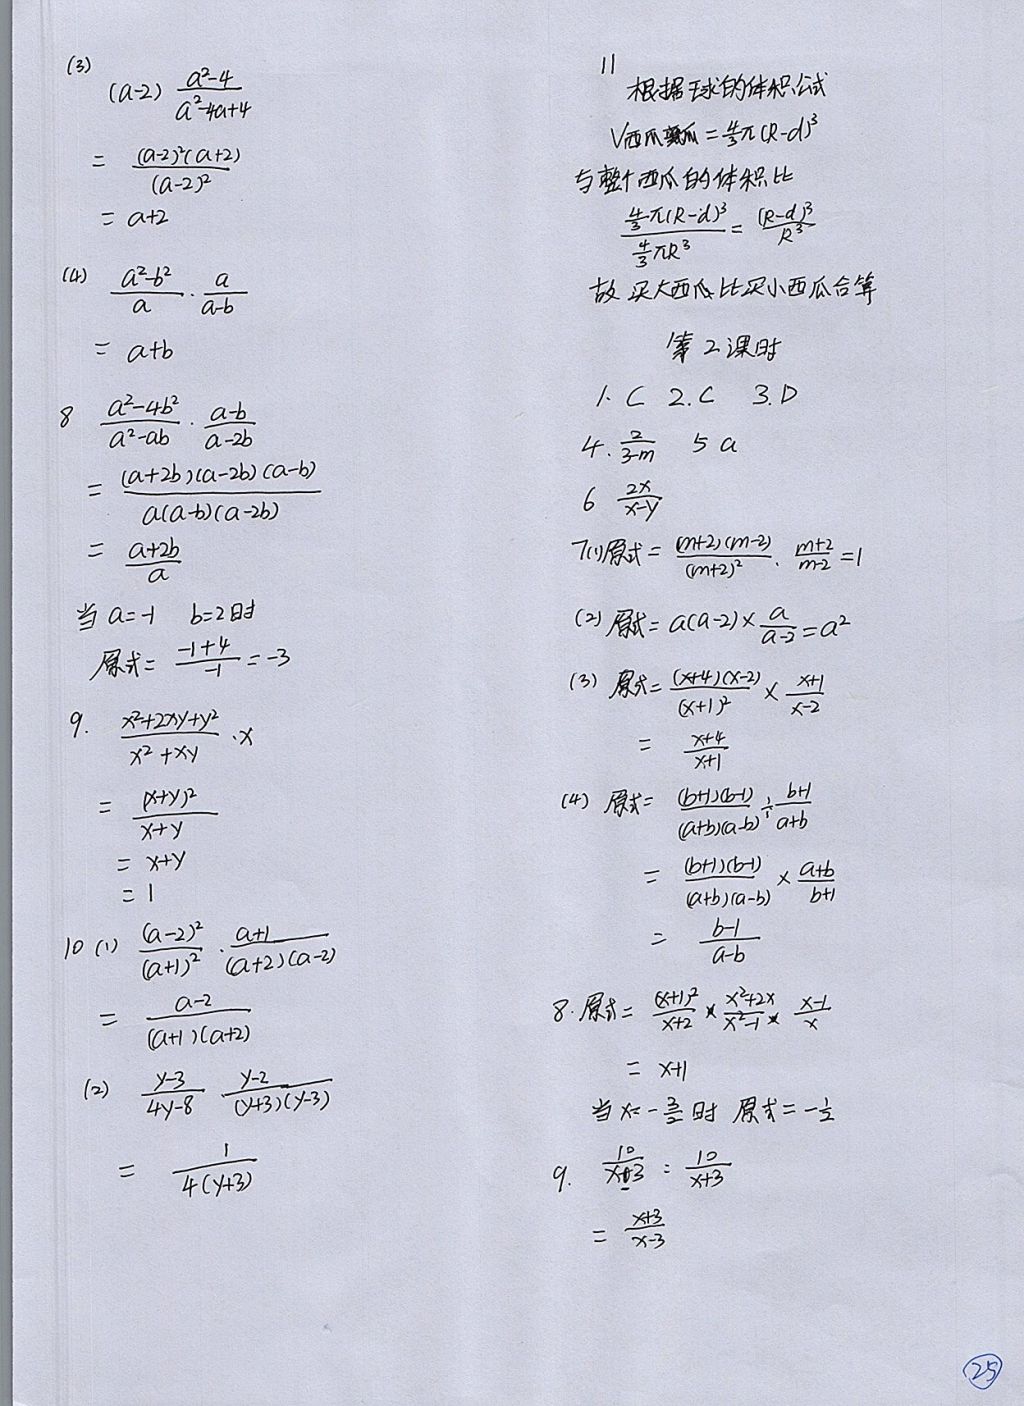 (3)
(a-2) (a²-4)/(a²-4a+4)
= (a-2)²(a+2)/(a-2)²
= a+2
(4) (a²-b²)/a · a/(a-b)
= a+b
8 (a²-4b²)/(a²-ab) · (a-b)/(a-2b)
= (a+2b)(a-2b)(a-b)/a(a-b)(a-2b)
= (a+2b)/a
当 a=-1 b=2时
原式= (-1+4)/-1 =-3
9. (x²+2xy+y²)/(x²+xy) ·x
= (x+y)²/(x+y)
= x+y
= 1
10 (1) (a-2)²/(a+1)² · (a+1)/(a+2)(a-2)
= (a-2)/(a+1)(a+2)
(2) (y-3)/(4y-8) · (y-2)/(y+3)(y-3)
= 1/4(y+3)
11
根据球的体积公式
V西瓜瓤=4/3π(R-d)³
与整个西瓜的体积比
4/3π(R-d)³/4/3πR³ = (R-d)³/R³
故买大西瓜比买小西瓜合算
第2课时
1. C 2. C 3. D
4. 2/(3-m) 5 a
6 2x/(x-y)
7(1)原式= (m+2)(m-2)/(m+2)² · (m+2)/(m-2) =1
(2) 原式= a(a-2)× a/(a-2) =a²
(3) 原式= (x+4)(x-2)/(x+1)² × (x+1)/(x-2)
= (x+4)/(x+1)
(4) 原式= (b+1)(b-1)/(a+b)(a-b) ÷ (b+1)/(a+b)
= (b+1)(b-1)/(a+b)(a-b) × (a+b)/(b+1)
= (b-1)/(a-b)
8. 原式= (x+1)²/(x+2) × (x²+2x)/(x²-1) × (x-1)/x
= x+1
当 x=-3/2 时 原式=-1/2
9. 10/(x-3) : 10/(x+3)
= (x+3)/(x-3)
25